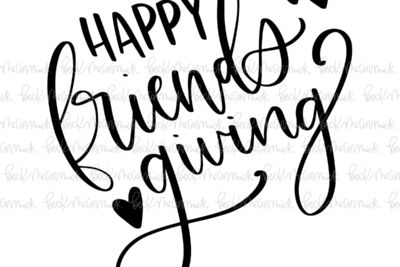 HAPPY
friends
giving